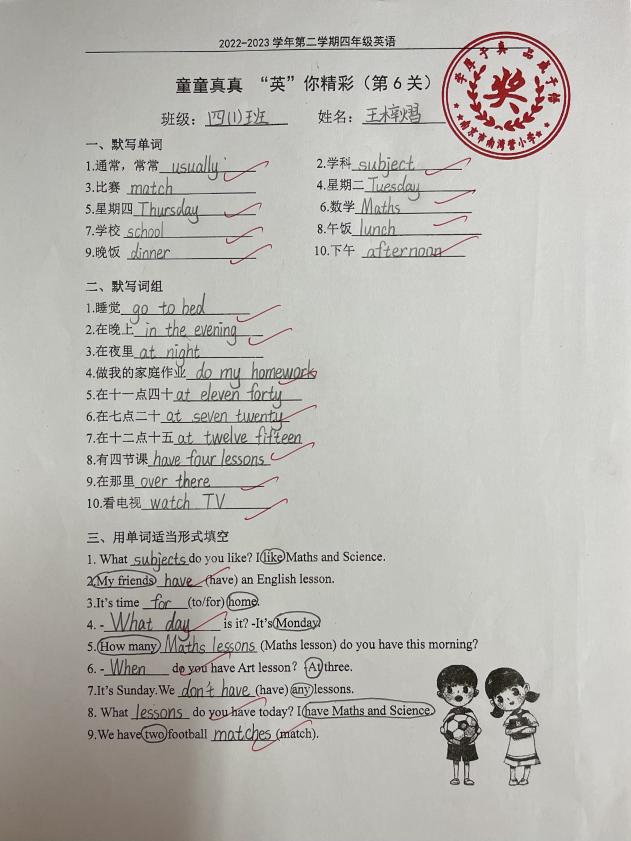 2022-2023学年第二学期四年级英语
童童真真 “英”你精彩（第6关）
班级：四(1)班 姓名：王梓熠
学厚于真 品成于恪
奖
南京市南湾营小学
一、默写单词
1.通常，常常 usually 2.学科 subject
3.比赛 match 4.星期二 Tuesday
5.星期四 Thursday 6.数学 Maths
7.学校 school 8.午饭 lunch
9.晚饭 dinner 10.下午 afternoon
二、默写词组
1.睡觉 go to bed
2.在晚上 in the evening
3.在夜里 at night
4.做我的家庭作业 do my homework
5.在十一点四十 at eleven forty
6.在七点二十 at seven twenty
7.在十二点十五 at twelve fifteen
8.有四节课 have four lessons
9.在那里 over there
10.看电视 watch TV
三、用单词适当形式填空
1. What subjects do you like? I like Maths and Science.
2. My friends have (have) an English lesson.
3.It's time for (to/for) home.
4. - What day is it? -It's Monday.
5. How many Maths lessons (Maths lesson) do you have this morning?
6. - When do you have Art lesson? -At three.
7.It's Sunday.We don't have (have) any lessons.
8. What lessons do you have today? I have Maths and Science.
9.We have two football matches (match).